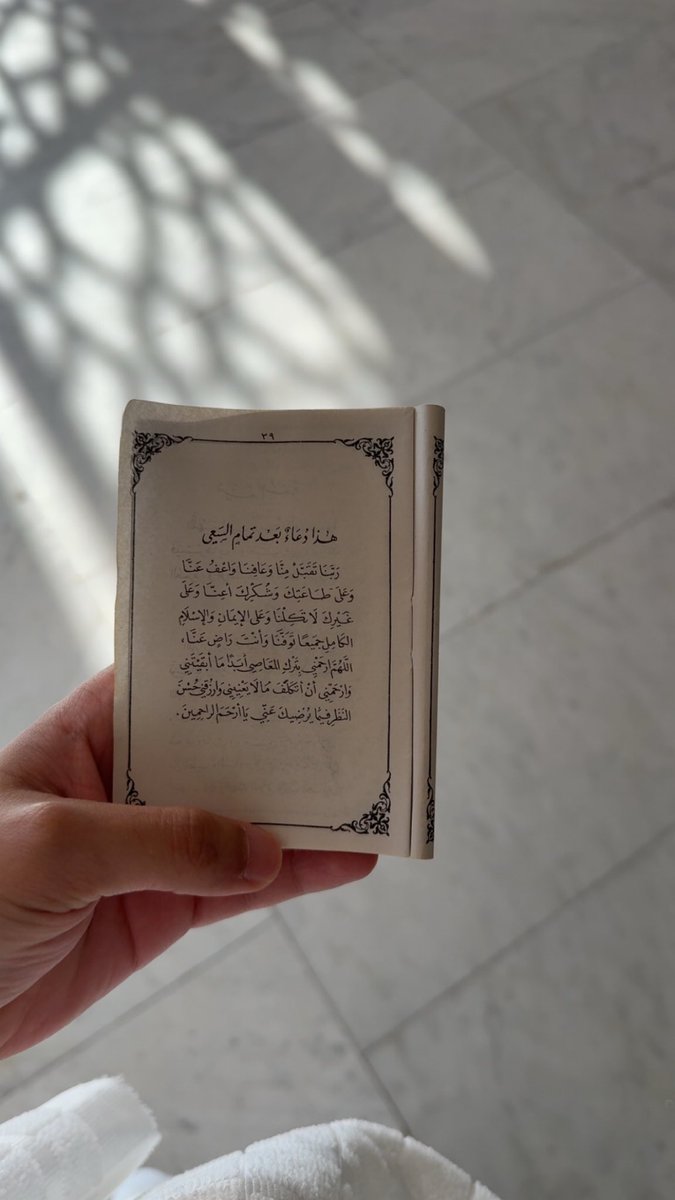 ٣٩
هٰذَا دُعَاءٌ بَعْدَ تمَامِ السَّعِى
رَبَّنَا تَقَبَّلْ مِنَّا وَعَافِنَا وَاعْفُ عَنَّا
وَعَلَى طَاعَتِكَ وَشُكْرِكَ أَعِنَّا وَعَلَى
غَيْرِكَ لَا تَكِلْنَا وَعَلَى الإِيمَانِ وَالإِسْلَامِ
الكَامِلِ جَمِيعًا تَوَفَّنَا وَأَنْتَ رَاضٍ عَنَّا،
اللَّهُمَّ ارْحَمْنِي بِتَرْكِ المَعَاصِى أَبَدًا مَا أَبْقَيْتَنِي
وَارْحَمْنِي أَنْ أَتَكَلَّفَ مَا لَا يَعْنِينِي وَارْزُقْنِي حُسْنَ
النَّظَرِ فِيمَا يُرْضِيكَ عَنِّي يَا أَرْحَمَ الرَاحِمِينَ.